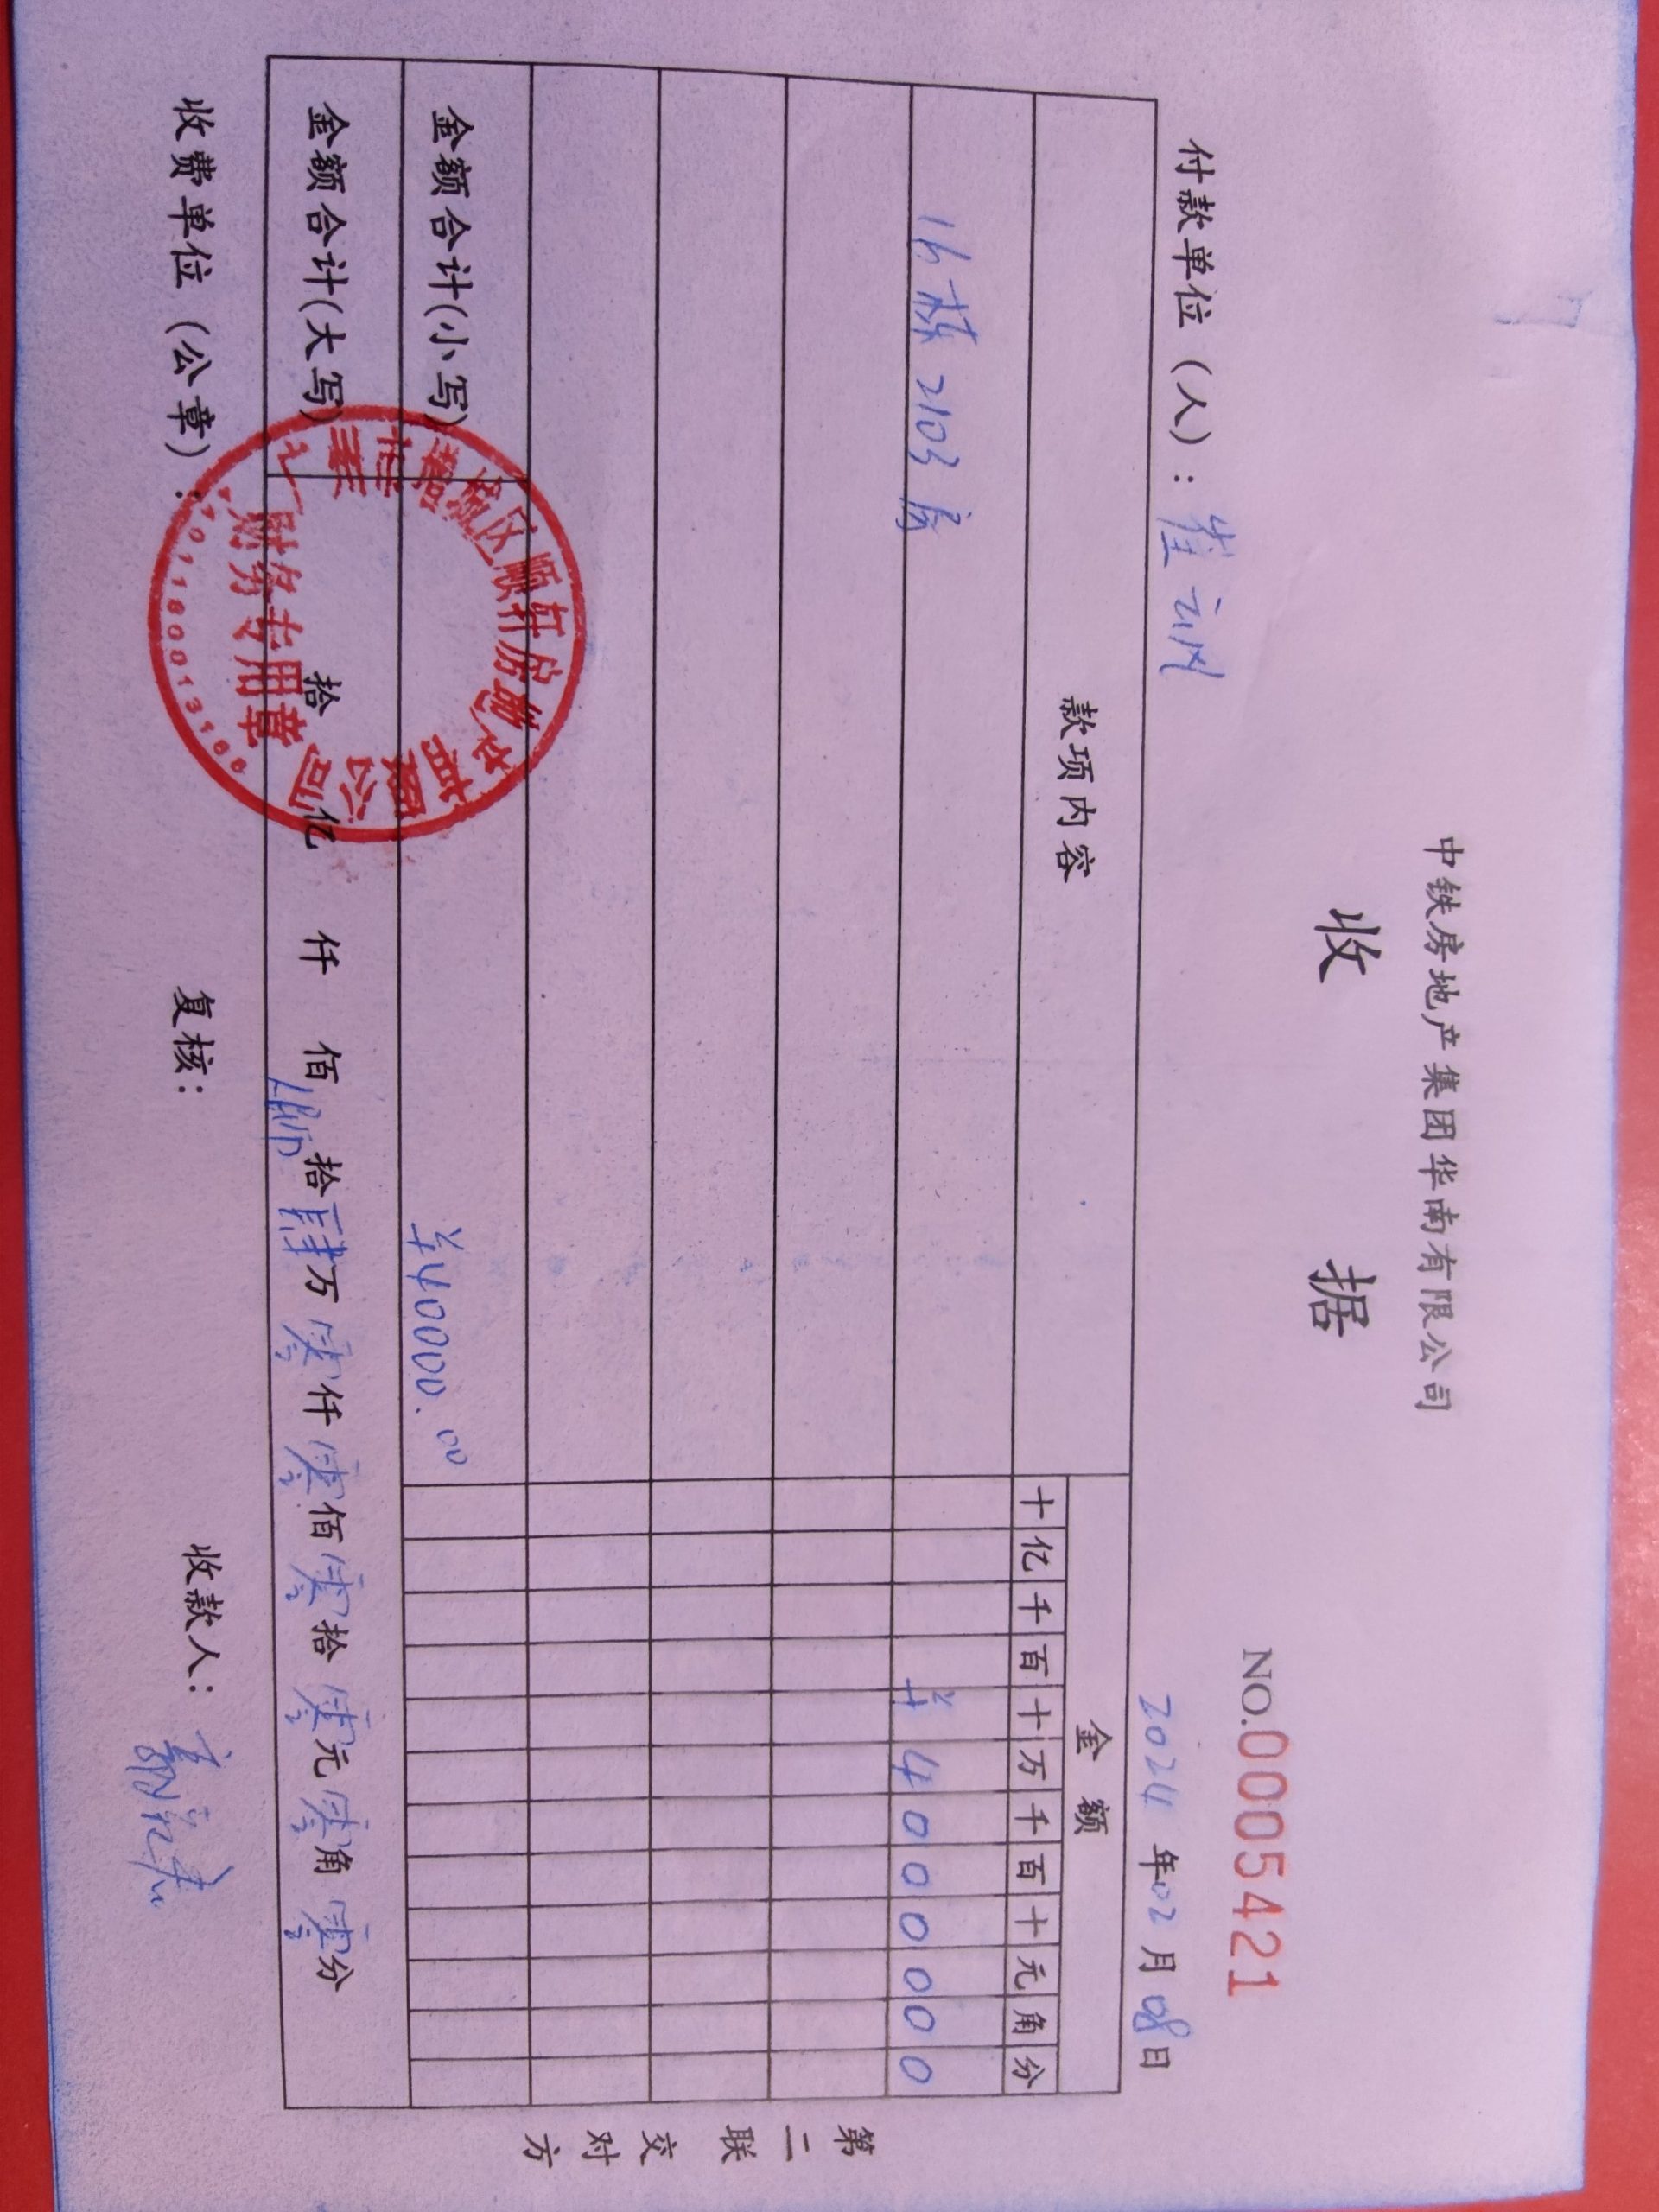 中铁房地产集团华南有限公司
收 据
NO.0005421
付款单位（人）：崔云
2024 年 02 月 08 日
款项内容 金 额
十 亿 千 百 十 万 千 百 十 元 角 分
16栋2103房 ¥ 4 0 0 0 0 0 0
金额合计(小写) ¥40000.00
金额合计(大写) 拾 亿 仟 佰 拾 肆 万 零 仟 零 佰 零 拾 零 元 零 角 零 分
收费单位（公章）： 复核： 收款人：
第二联交对方
广州市增城区顺轩房地产有限公司
财务专用章